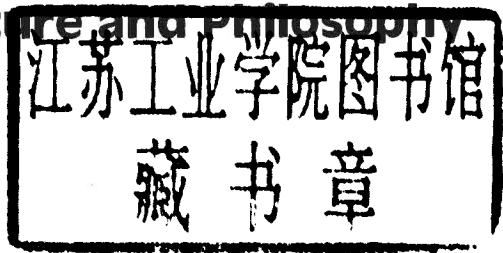 ure and Philosophy
江苏工业学院图书馆
藏书章